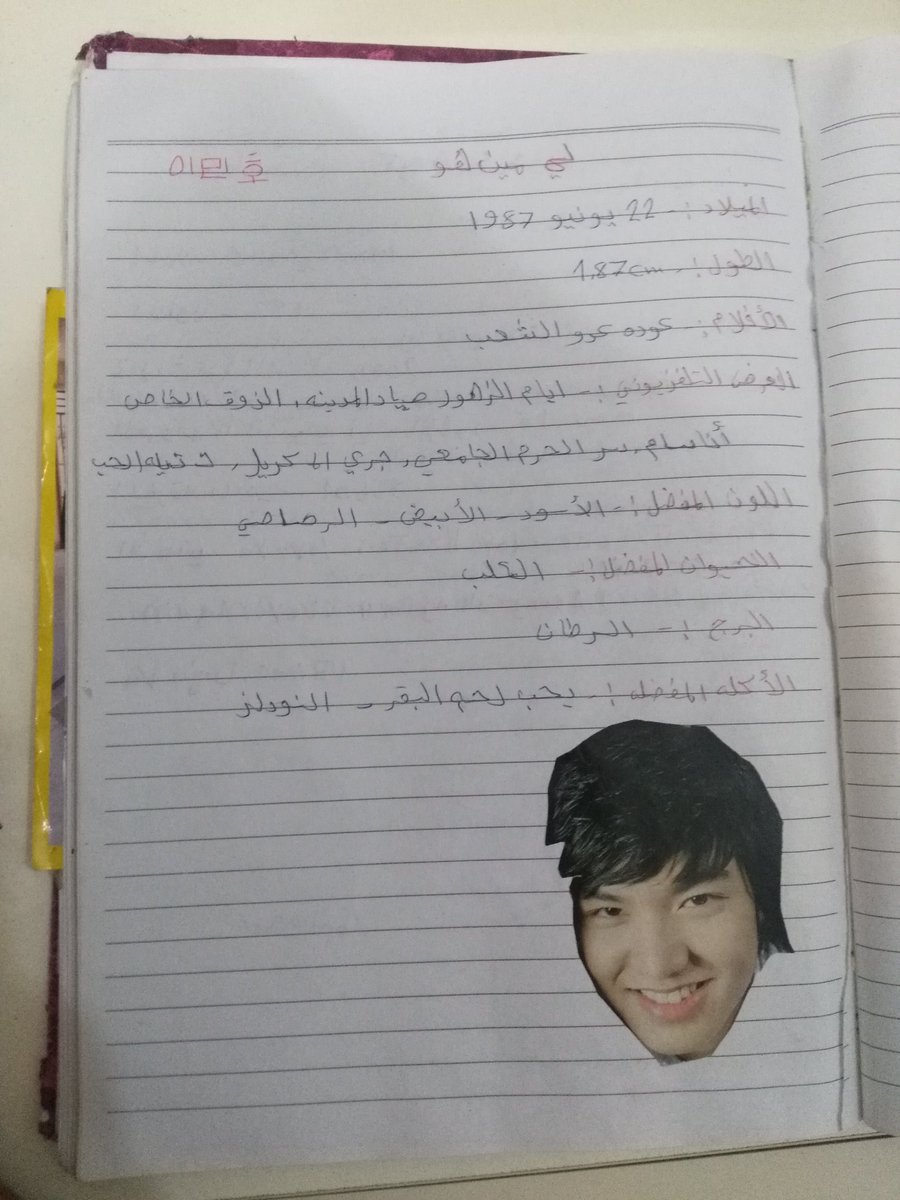 لي مين هو 이민호
الميلاد :- 22 يونيو 1987
الطول :- 1.87cm
الأفلام :- عوده عدو الشعب
العرض التلفزيوني :- ايام الزهور صياد المدينه , الزوق الخاص
أنا سام , سر الحرم الجامعي , جري المكريل , الحب
اللون المفضل :- الأسود - الأبيض - الرصاصي
الحيوان المفضل :- الكلب
البرج :- السرطان
الأكله المفضله :- يحب لحم البقر - النودلز